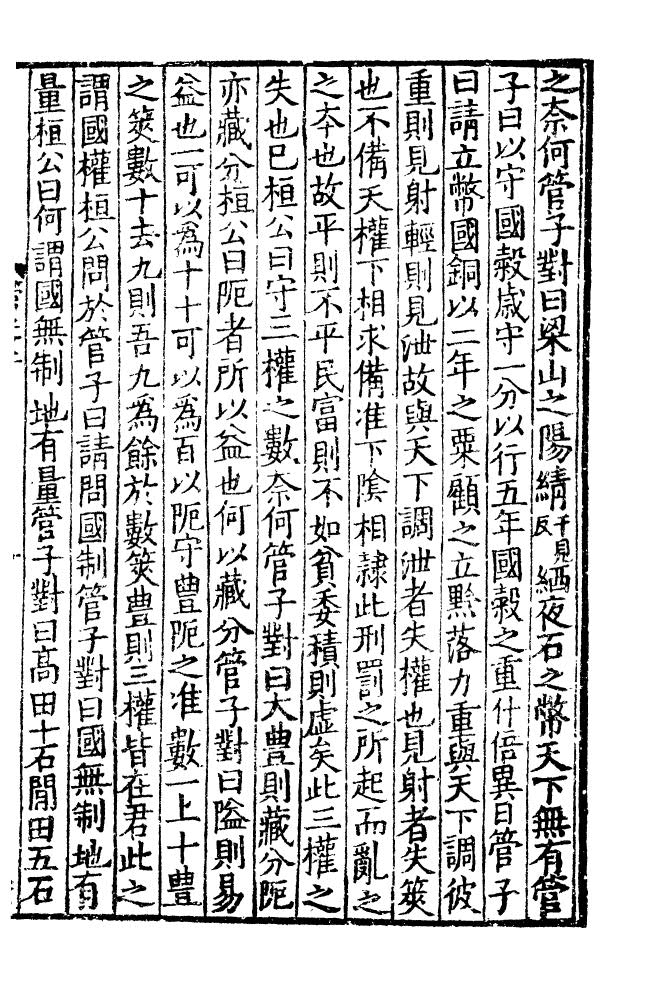 之奈何管子對曰梁山之陽綪千見反絤夜石之幣天下無有管
子曰以守國穀歲守一分以行五年國穀之重什倍異日管子
曰請立幣國銅以二年之粟顧之立黔落力重與天下調彼
重則見射輕則見泄故與天下調泄者失權也見射者失筴
也不備天權下相求備准下隂相隷此刑罰之所起而亂之
之夲也故平則不平民富則不如貧委積則虛矣此三權之
失也巳桓公曰守三權之數奈何管子對曰大豊則藏分阨
亦藏分桓公曰阨者所以益也何以藏分管子對曰隘則易
益也一可以為十十可以為百以阨守豊阨之准數一上十豊
之筴數十去九則吾九為餘於數筴豊則三權皆在君此之
謂國權桓公問於管子曰請問國制管子對曰國無制地有
量桓公曰何謂國無制地有量管子對曰髙田十石閒田五石